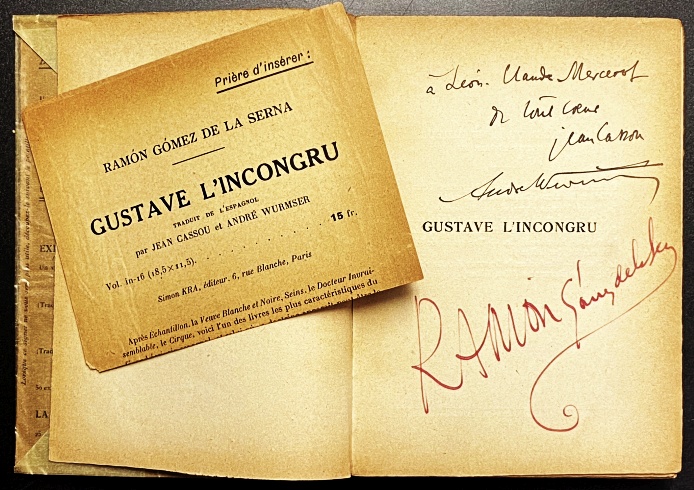 Prière d'insérer :
RAMÓN GÓMEZ DE LA SERNA
GUSTAVE L'INCONGRU
TRADUIT DE L'ESPAGNOL
par JEAN CASSOU et ANDRÉ WURMSER
Vol. in-16 (18,5×11,5). . . . . . . . . . . . 15 fr.
Simon KRA, éditeur. 6, rue Blanche, Paris
Après Échantillon, la Veuve Blanche et Noire, Seins, le Docteur Invrai-
semblable, le Cirque, voici l'un des livres les plus caractéristiques du
à Léon-Claude Mercerot
de tout cœur
Jean Cassou
André Wurmser
GUSTAVE L'INCONGRU
RAMÓN Gómez de la Serna